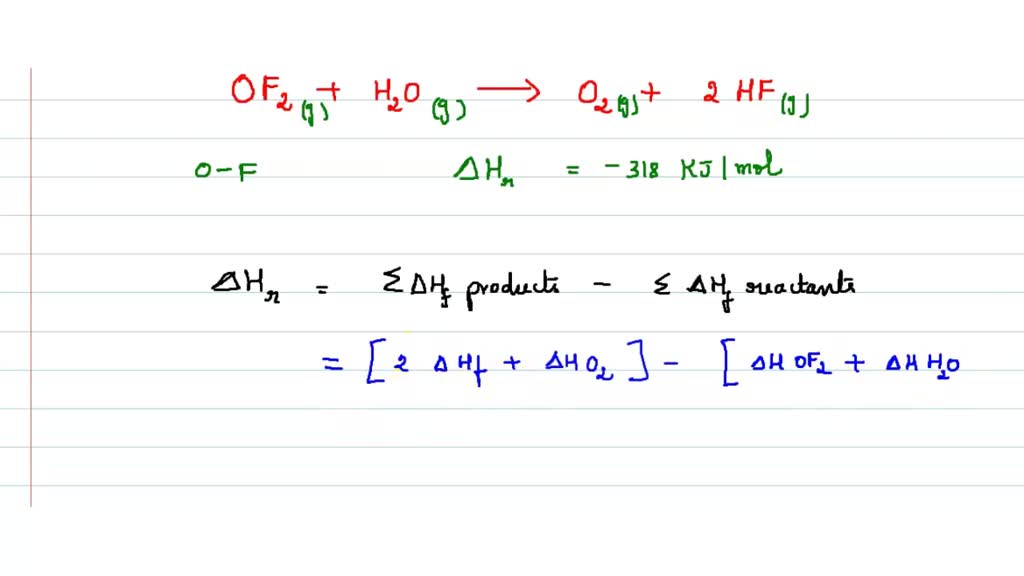 OF₂(g) + H₂O(g) ⟶ O₂(g) + 2 HF(g)
O-F ΔHr = -318 KJ/mol
ΔHr = Σ ΔHf products - Σ ΔHf reactants
= [2 ΔHf + ΔH O₂] - [ΔH OF₂ + ΔH H₂O